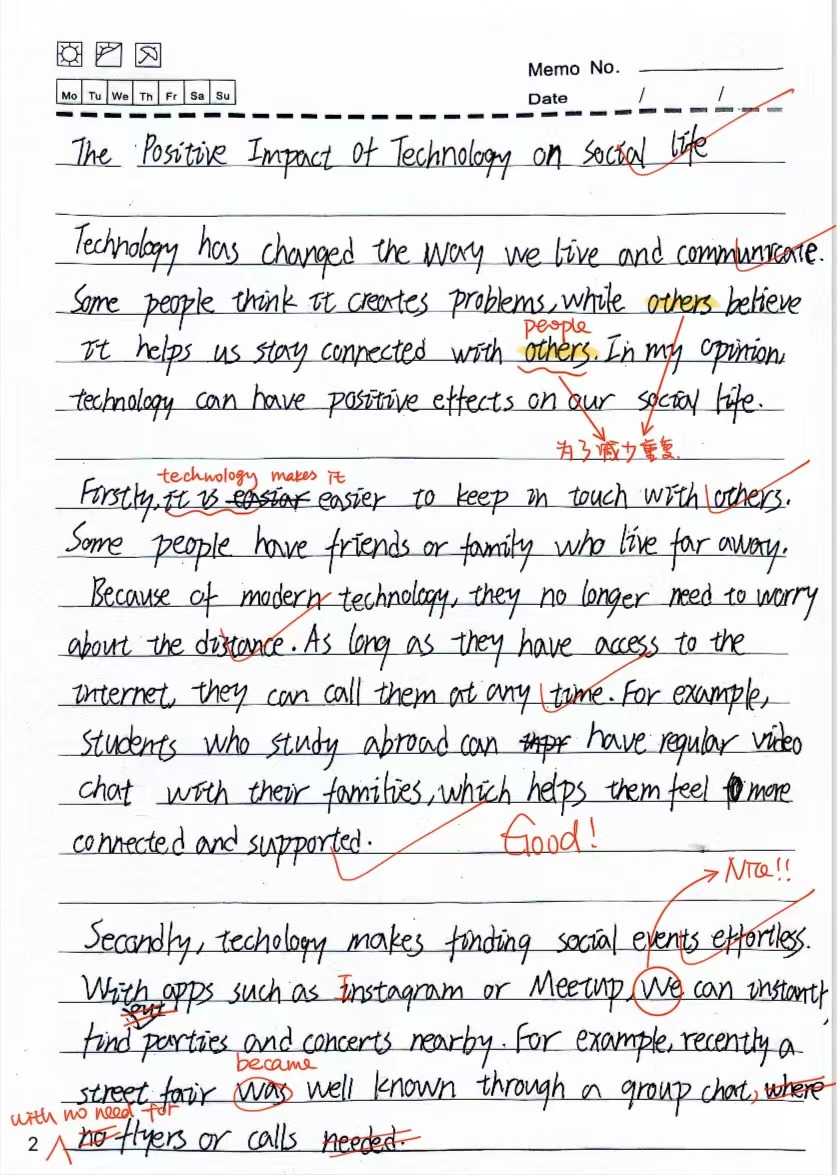 Memo No.
Mo Tu We Th Fr Sa Su
Date / /
The Positive Impact Of Technology on social life
Technology has changed the way we live and communicate.
Some people think it creates problems, while others believe
people
it helps us stay connected with others. In my opinion,
technology can have positive effects on our social life.
为了减少重复.
technology makes it
Firstly, it is easier easier to keep in touch with others.
Some people have friends or family who live far away.
Because of modern technology, they no longer need to worry
about the distance. As long as they have access to the
internet, they can call them at any time. For example,
students who study abroad can have regular video
chat with their families, which helps them feel more
connected and supported.
Good!
Nice!!
Secondly, techology makes finding social events effortless.
With apps such as Instagram or Meetup, we can instantly
find parties and concerts nearby. For example, recently a
became
street fair was well known through a group chat, where
with no need for
no flyers or calls needed.
2